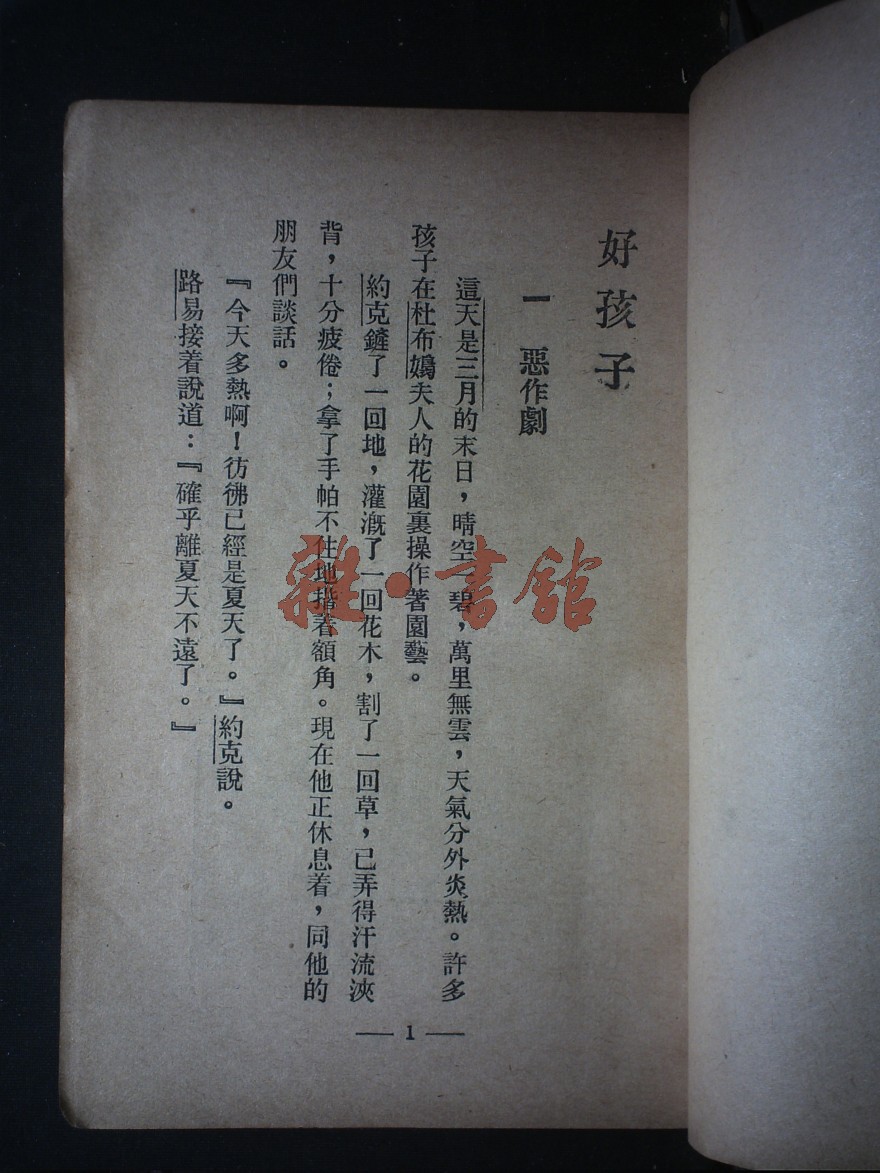 好孩子
一 惡作劇
這天是三月的末日，晴空一碧，萬里無雲，天氣分外炎熱。許多
孩子在杜布鵶夫人的花園裏操作著園藝。
約克鏟了一回地，灌漑了一回花木，割了一回草，已弄得汗流浹
背，十分疲倦；拿了手帕不住地揩着額角。現在他正休息着，同他的
朋友們談話。
『今天多熱啊！彷彿已經是夏天了。』約克說。
路易接着說道：『確乎離夏天不遠了。』
— 1 —
雜·書館